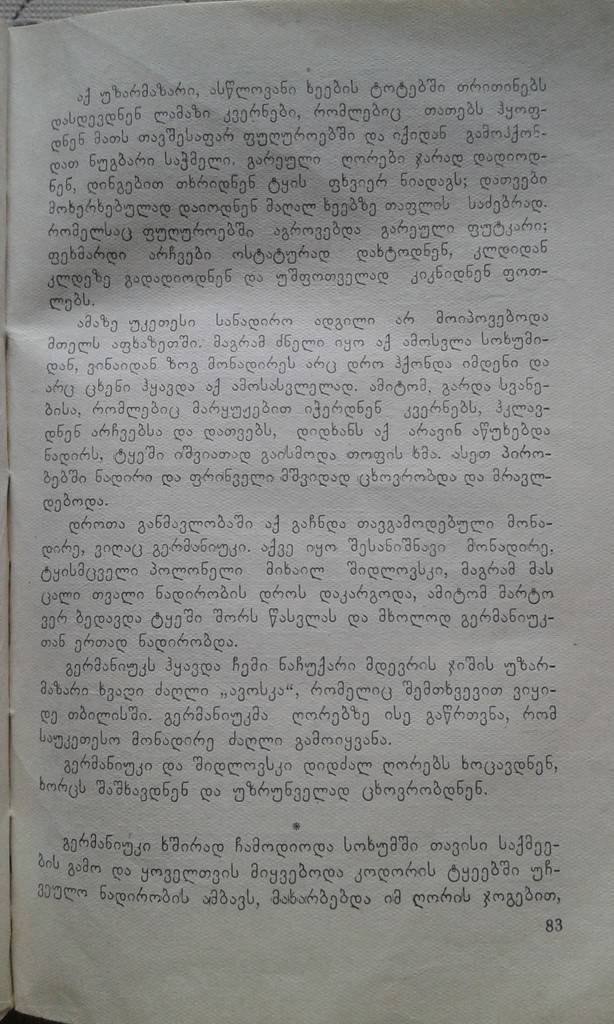 აქ უზარმაზარი, ასწლოვანი ხეების ტოტებში თრითინებს
დასდევდნენ ლამაზი კვერნები, რომლებიც თათებს ჰყოფ-
დნენ მათს თავშესაფარ ფუღუროებში და იქიდან გამოჰქონ-
დათ ნუგბარი საჭმელი. გარეული ღორები ჯარად დადიოდ-
ნენ, დინგებით თხრიდნენ ტყის ფხვიერ ნიადაგს; დათვები
მოხერხებულად დაიოდნენ მაღალ ხეებზე თაფლის საძებრად.
რომელსაც ფუღუროებში აგროვებდა გარეული ფუტკარი;
ფეხმარდი არჩვები ოსტატურად დახტოდნენ, კლდიდან
კლდეზე გადადიოდნენ და უშფოთველად კიკნიდნენ ფოთ-
ლებს.
ამაზე უკეთესი სანადირო ადგილი არ მოიპოვებოდა
მთელს აფხაზეთში. მაგრამ ძნელი იყო აქ ამოსვლა სოხუმი-
დან, ვინაიდან ზოგ მონადირეს არც დრო ჰქონდა იმდენი და
არც ცხენი ჰყავდა აქ ამოსასვლელად. ამიტომ, გარდა სვანე-
ბისა, რომლებიც მარყუჟებით იჭერდნენ კვერნებს, ჰკლავ-
დნენ არჩვებსა და დათვებს, დიდხანს აქ არავინ აწუხებდა
ნადირს, ტყეში იშვიათად გაისმოდა თოფის ხმა. ასეთ პირო-
ბებში ნადირი და ფრინველი მშვიდად ცხოვრობდა და მრავლ-
დებოდა.
დროთა განმავლობაში აქ გაჩნდა თავგამოდებული მონა-
დირე, ვიღაც გერმანიუკი. აქვე იყო შესანიშნავი მონადირე,
ტყისმცველი პოლონელი მიხაილ შიდლოვსკი, მაგრამ მას
ცალი თვალი ნადირობის დროს დაკარგოდა, ამიტომ მარტო
ვერ ბედავდა ტყეში შორს წასვლას და მხოლოდ გერმანიუკ-
თან ერთად ნადირობდა.
გერმანიუკს ჰყავდა ჩემი ნაჩუქარი მდევრის ჯიშის უზარ-
მაზარი ხვადი ძაღლი „ავოსკა“, რომელიც შემთხვევით ვიყი-
დე თბილისში. გერმანიუკმა ღორებზე ისე გაწრთვნა, რომ
საუკეთესო მონადირე ძაღლი გამოიყვანა.
გერმანიუკი და შიდლოვსკი დიდძალ ღორებს ხოცავდნენ,
ხორცს შაშხავდნენ და უზრუნველად ცხოვრობდნენ.
*
გერმანიუკი ხშირად ჩამოდიოდა სოხუმში თავისი საქმეე-
ბის გამო და ყოველთვის მიყვებოდა კოდორის ტყეებში უჩ-
ვეულო ნადირობის ამბავს, მახარბებდა იმ ღორის ჯოგებით,
83